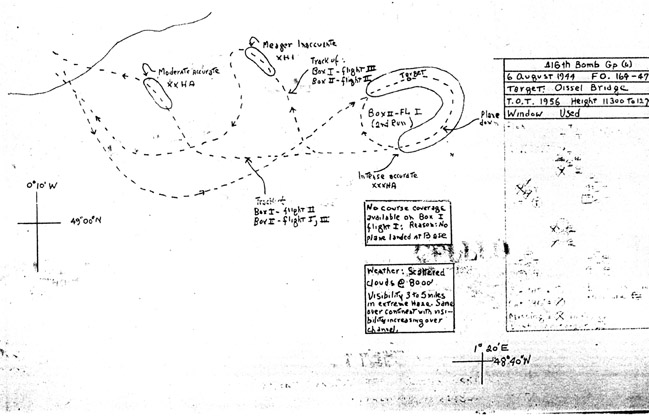 Meager Inaccurate
XHI
Moderate accurate
XXHA
Track of:
Box I - flight III
Box II - flight II
Target
Box II - FL I
(2nd Run)
Plane
down
Intense accurate
XXXHA
Track of
Box I - flight II
Box II - flight I, III
0° 10' W
49° 00' N
No course coverage
available on Box I
flight I; Reason: No
plane landed at Base
Weather: Scattered
clouds @ 8000'
Visibility 3 to 5 miles
in extreme Haze. Same
over continent with visi-
bility increasing over
channel.
416th Bomb Gp (L)
6 August 1944 F.O. 164-47
Target: Oissel Bridge
T.O.T. 1956 Height 11300 to 127
Window Used
1° 20' E
48° 40' N